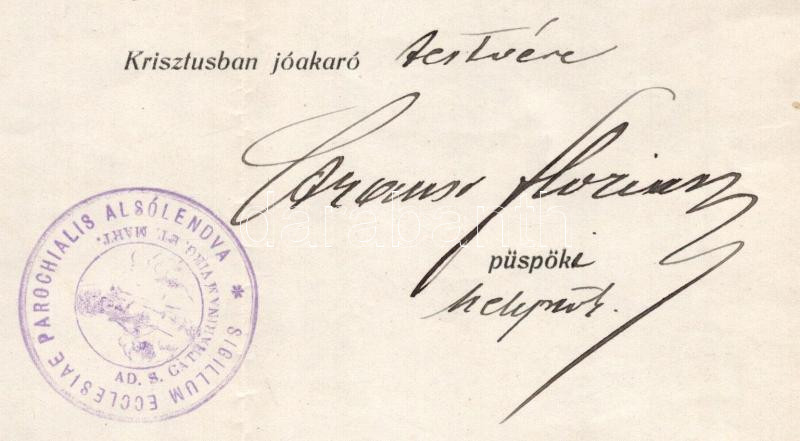 Krisztusban jóakaró testvére
Strausz Flórián
püspöki
helynök.
SIGILLUM ECCLESIAE PAROCHIALIS ALSÓLENDVA *
AD. S. CATHARINAM VIRG. ET. MART.
darabanth